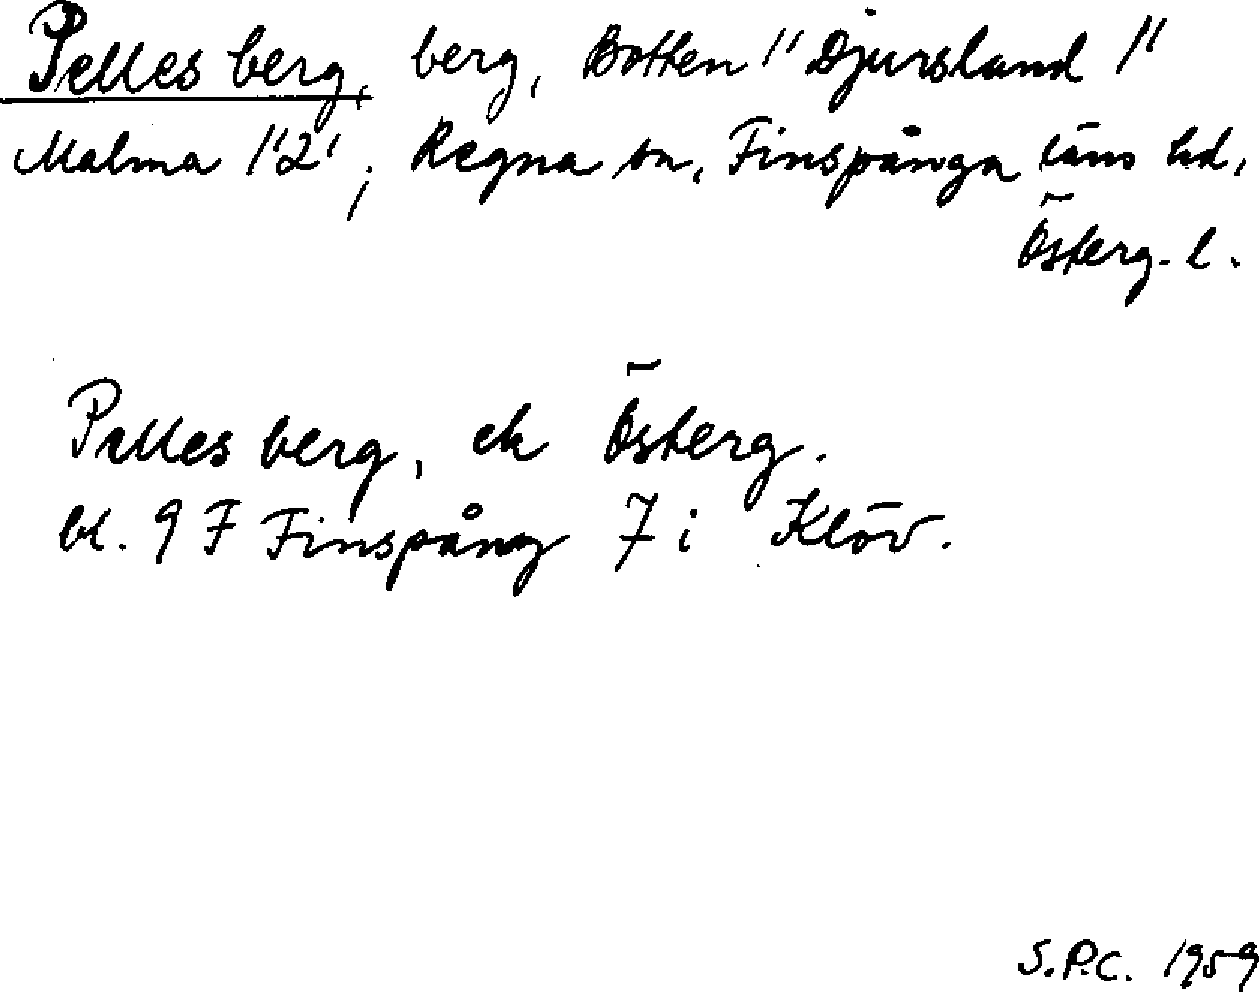 Pelles berg, berg, Botten 1" Djursland 1"
Malma 1'2', Regna sn, Finspånga läns hd,
Österg. l.
Pelles berg, ek Österg.
bl. 9 F Finspång 7 i Klöv.
S.P.C. 1959